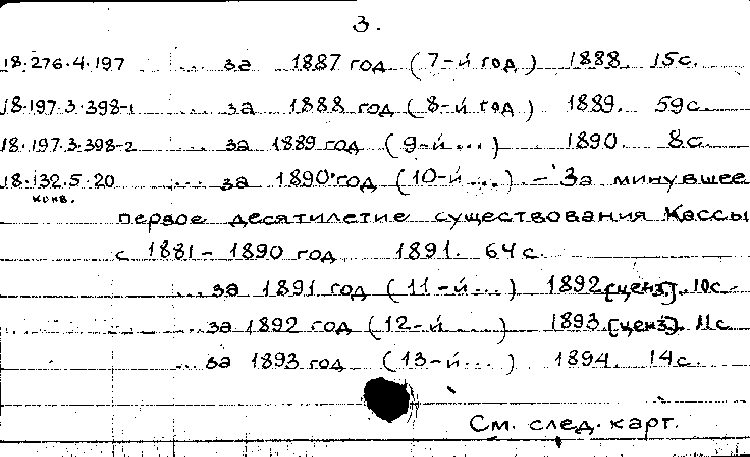 3.
18.276.4.197 ... за 1887 год (7-й год) 1888. 15с.
18.197.3.398-1 ... за 1888 год (8-й год) 1889. 59с.
18.197.3.398-2 ... за 1889 год (9-й ...) 1890. 8с.
18.132.5.20 ... за 1890 год (10-й ...) – За минувшее
конв.
первое десятилетие существования Кассы
с 1881 – 1890 год 1891. 64с.
... за 1891 год (11-й ...) 1892 [ценз.]. 10с.
... за 1892 год (12-й ...) 1893. [ценз.]. 11с.
... за 1893 год (13-й ...) 1894. 14с.
См. след. карт.